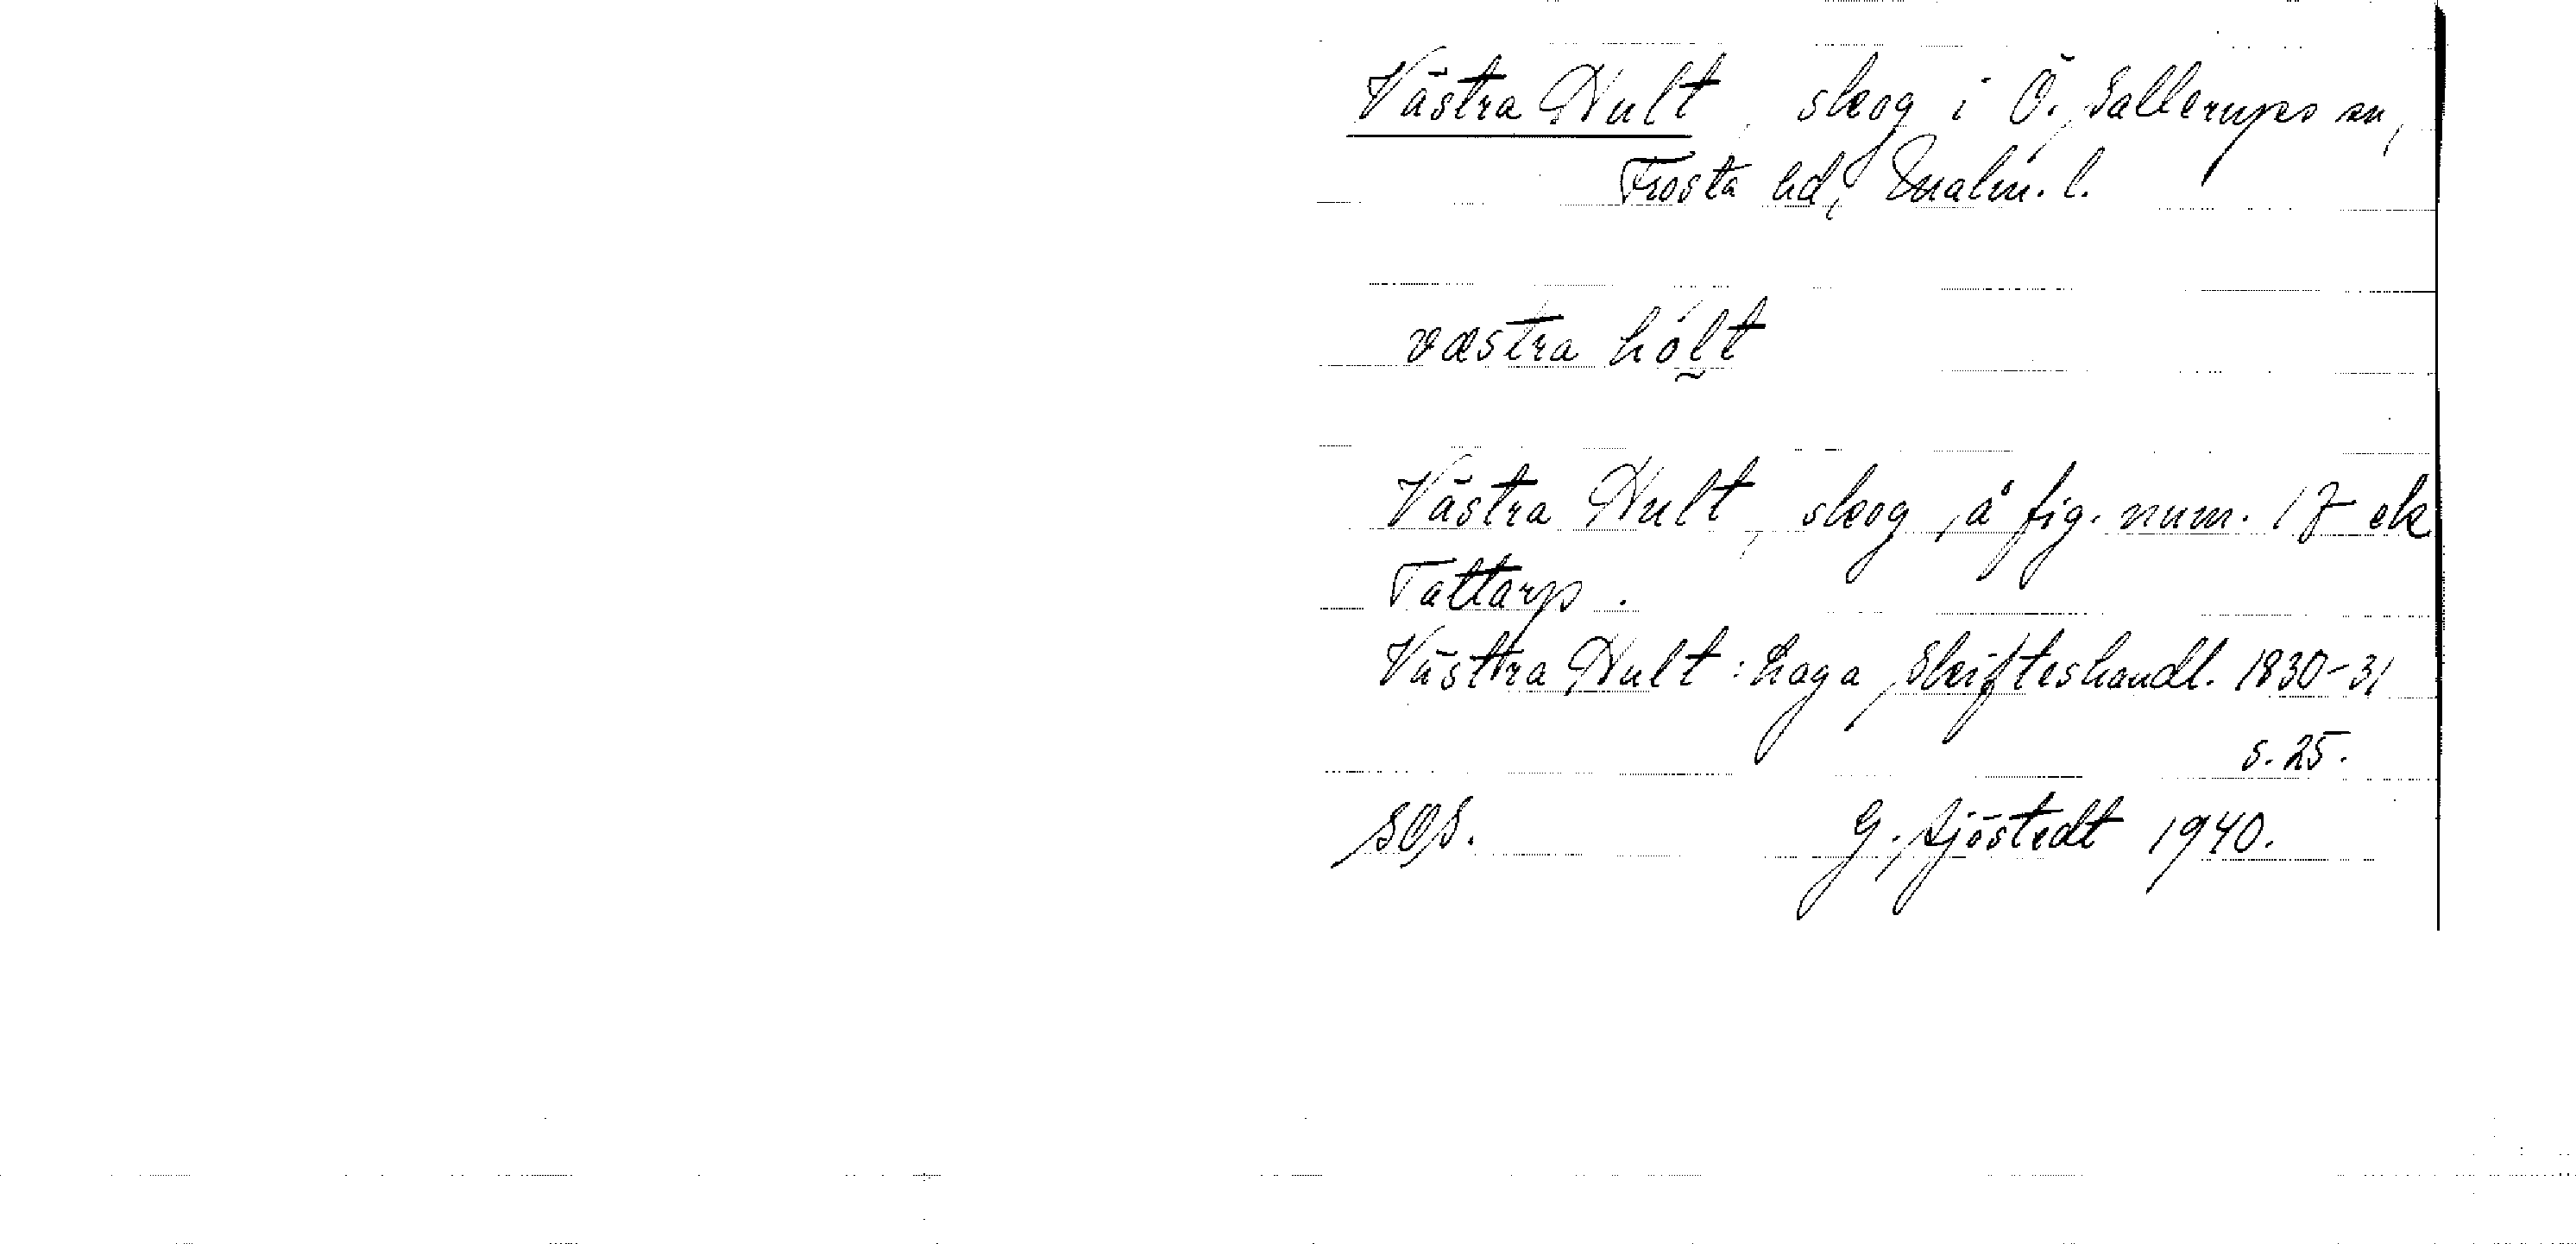 Västra Hult, skog i Ö. Sallerups sn,
Frosta hd, Malm. l.
væstra hólt
Västra Hult, skog, å fig. num. 17 ek
Tattarp.
Västtra Hult: haga, Skifteshandl. 1830-31
s. 25.
SOS. G. Sjöstedt 1940.